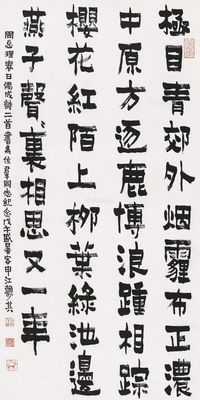 極目青郊外烟霾布正濃
中原方逐鹿博浪踵相踪
櫻花紅陌上柳葉綠池邊
燕子聲〻裏相思又一年
周总理春日偶成詩二首書爲同志紀念戊午客申江